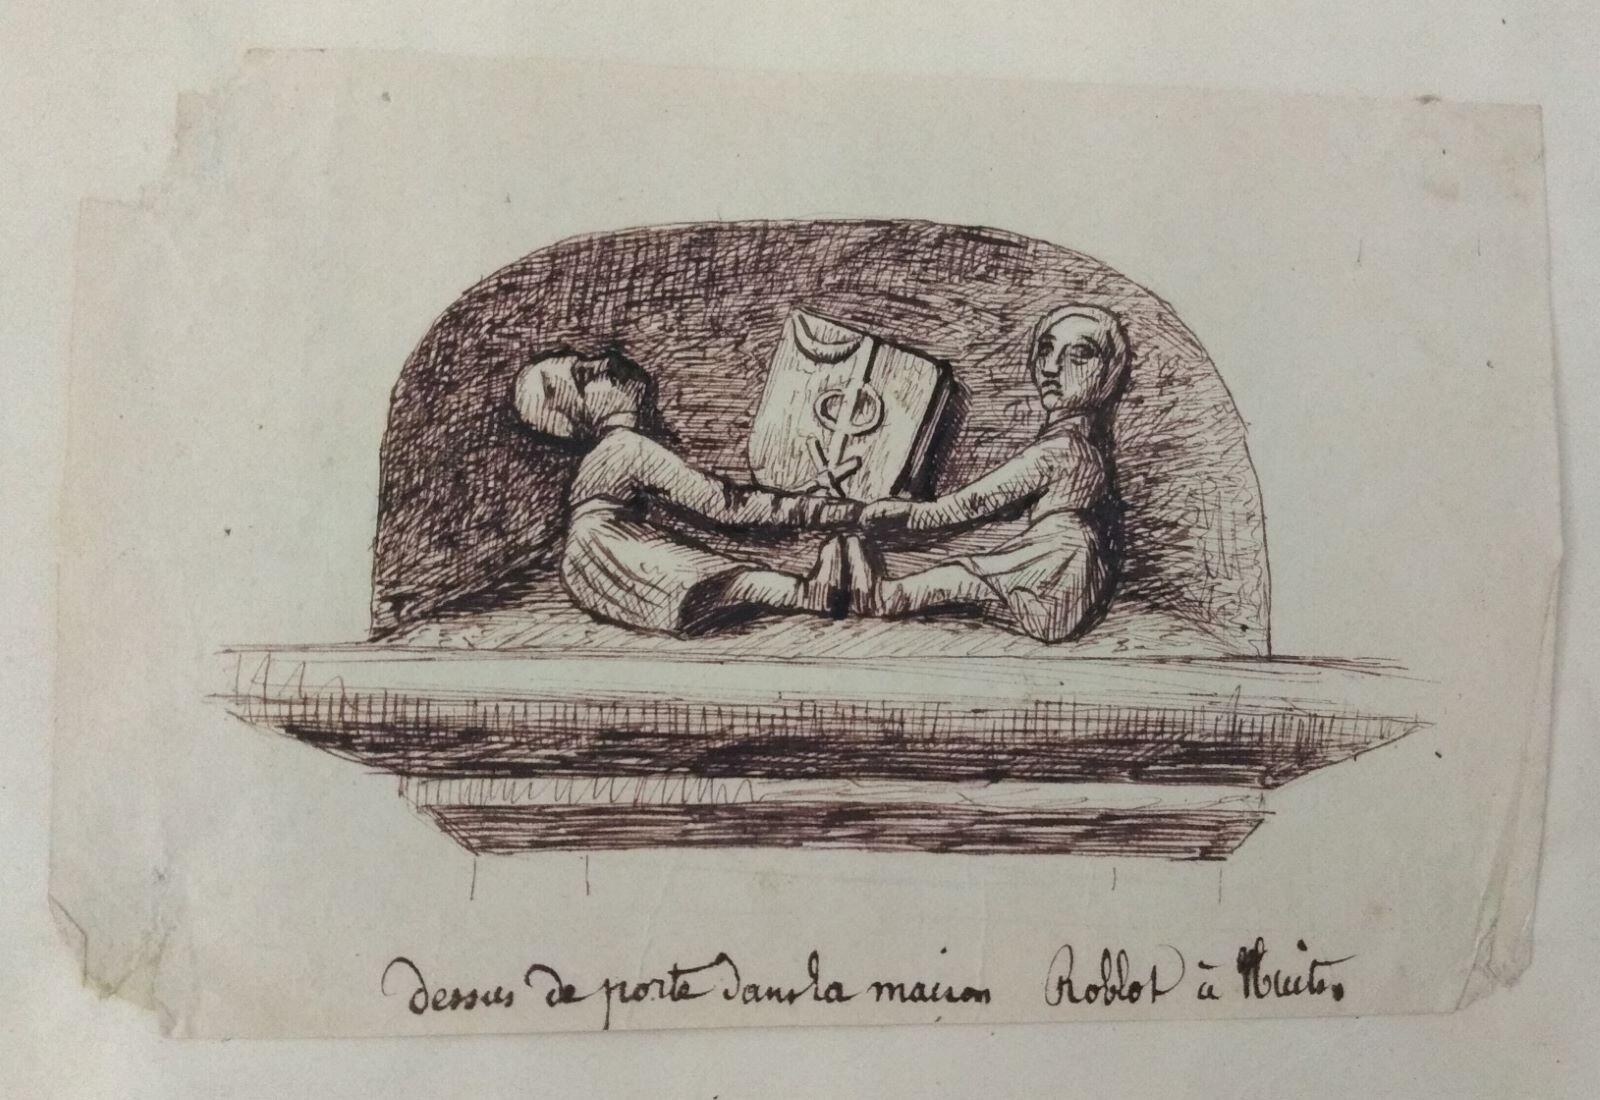 dessus de porte dans la maison Roblot à Nuits.